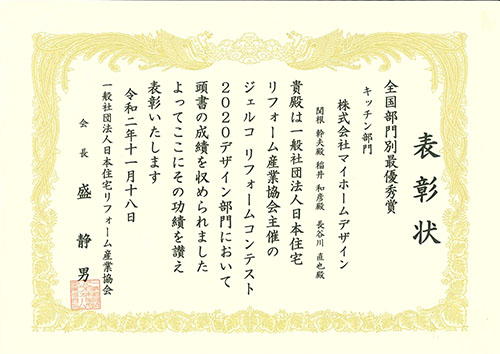 表彰状
全国部門別最優秀賞
キッチン部門
株式会社マイホームデザイン
関根 幹夫殿 稲井 和彦殿 長谷川 直也殿
貴殿は一般社団法人日本住宅
リフォーム産業協会主催の
ジェルコ リフォームコンテスト
2020デザイン部門において
頭書の成績を収められました
よってここにその功績を讃え
表彰いたします
令和二年十一月十八日
一般社団法人日本住宅リフォーム産業協会
会長 盛 静男